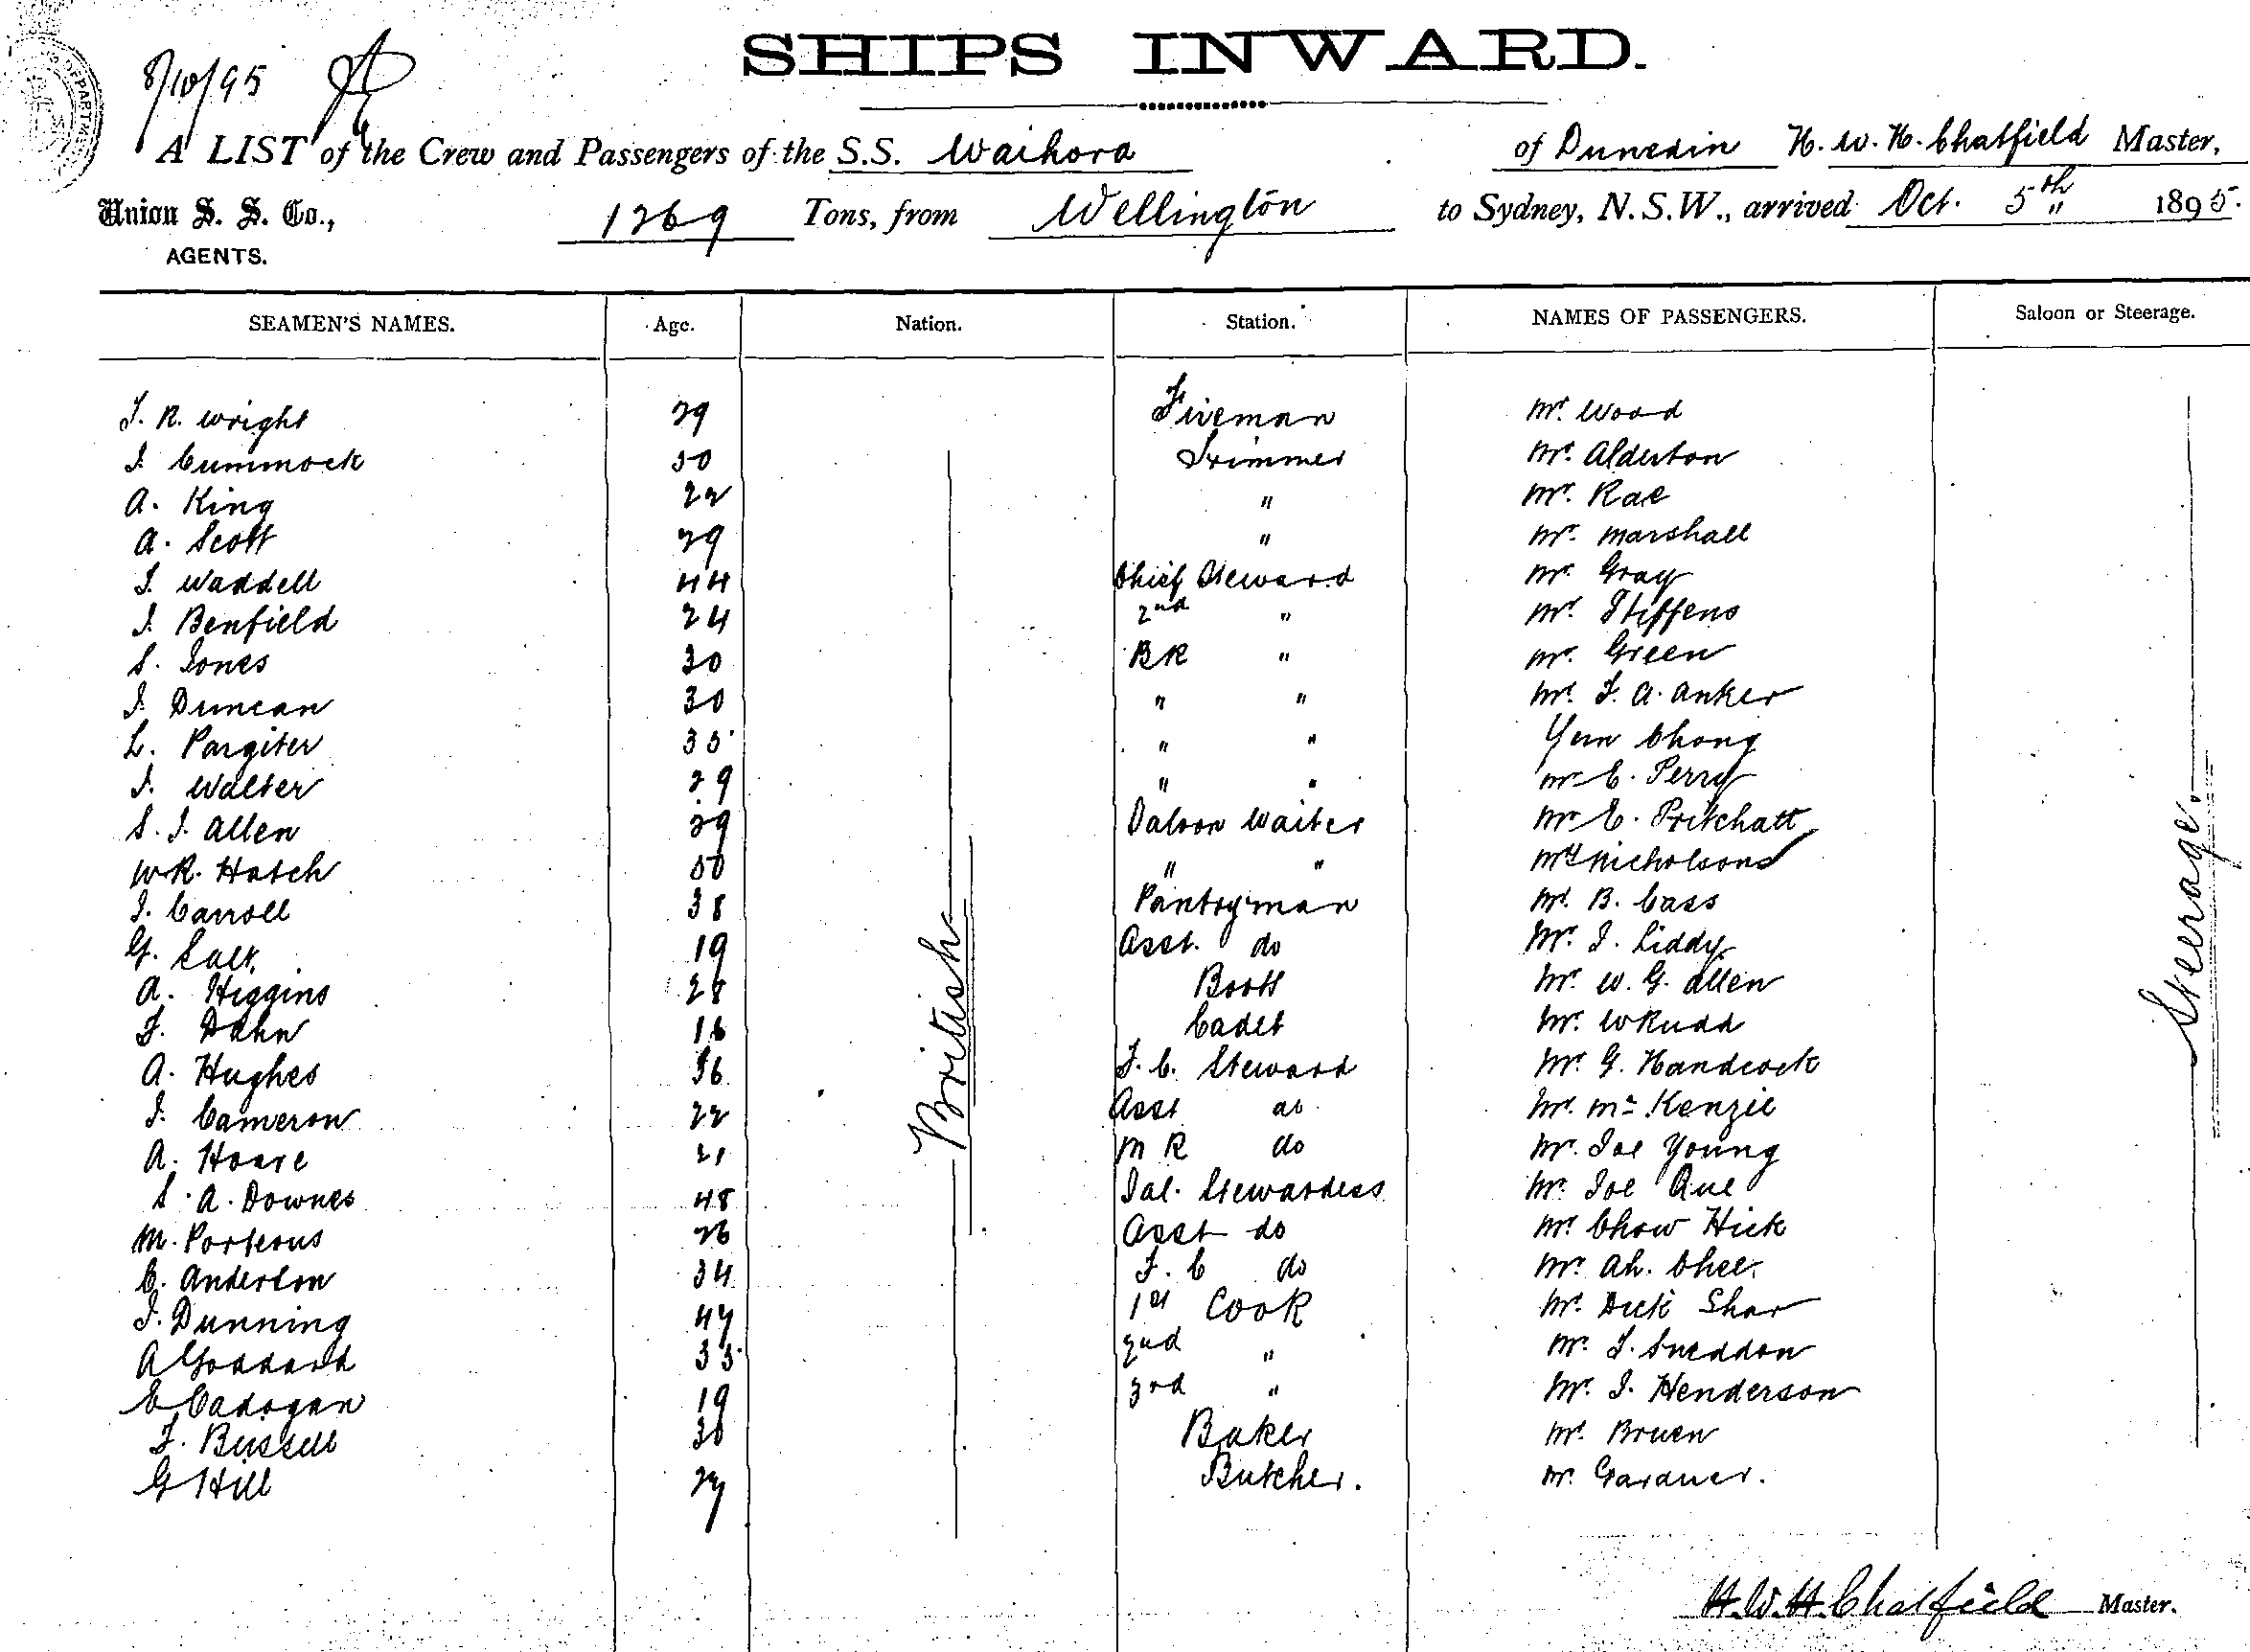 SHIPS INWARD.
8/10/95
A LIST of the Crew and Passengers of the S.S. Waihora of Dunedin H. W. H. Chatfield Master,
Union S. S. Co., 1269 Tons, from Wellington to Sydney, N.S.W., arrived Oct. 5th 1895.
AGENTS.
SEAMEN'S NAMES. Age. Nation. Station. NAMES OF PASSENGERS. Saloon or Steerage.
T. R. Wright 29 Fireman Mr. Wood
J. Cummock 30 Trimmer Mr. Alderton
A. King 22 " Mr. Rae
A. Scott 29 " Mr. Marshall
J. Waddell 44 Chief Steward Mr. Gray
J. Benfield 24 2nd " Mr. Stiffens
S. Jones 30 BR " Mr. Green
J. Duncan 30 " " Mr. F. A. Anker
L. Pargiter 35 " " Yun Chong
J. Walter 29 " " Mr E. Perry
S. J. Allen 29 Saloon Waiter Mr E. Pritchatt
W.R. Hatch 50 " " Nicholsons
J. Carroll 38 Pantryman Mr. B. Cass
G. Salt 19 Asst. do Mr. J. Liddy
A. Higgins 28 Boots Mr. W. G. Allen
F. Dahn 16 Cadet Mr. W Rudd
A. Hughes 36 F. C. Steward Mr. G. Handcock
J. Cameron 22 Asst do Mr. Mc Kenzie
A. Hoare 21 M R do Mr. Joe Young
S. A. Downes 48 Sal. Stewardess Mr. Joe Que
M. Porteous 26 Asst do Mr. Chow Hick
C. Anderson 34 F. C do Mr. Ah. Chee
J. Dunning 47 1st Cook Mr. Dick Shar
A Goddard 35 2nd " Mr. J. Sneddon
C Cadogan 19 3rd " Mr. J. Henderson
F. Bissell 30 Baker Mr. Bruen
G Hill 27 Butcher. Mr. Gardner.
British
Steerage.
H. W. H. Chatfield Master.